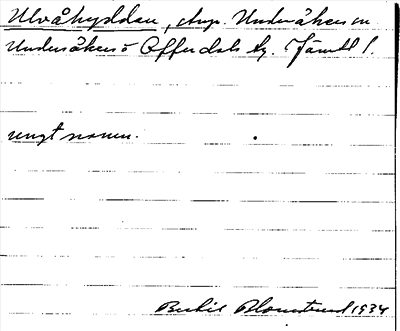 Ulvåhyddan, ängs. Undersåkers sn
Undersåkers o Offerdals tg. Jämtl l.
ungt namn.
Bertil Blomstrand 1934